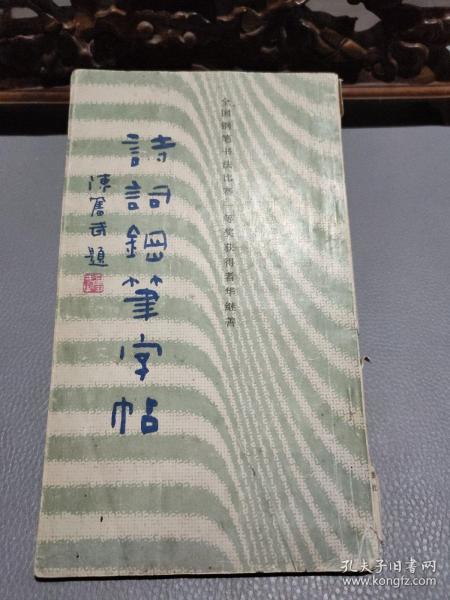 全国钢笔书法比赛一等奖获得者华继善
詩詞鋼筆字帖
陳奮武題
孔夫子旧书网
www.kongfz.com